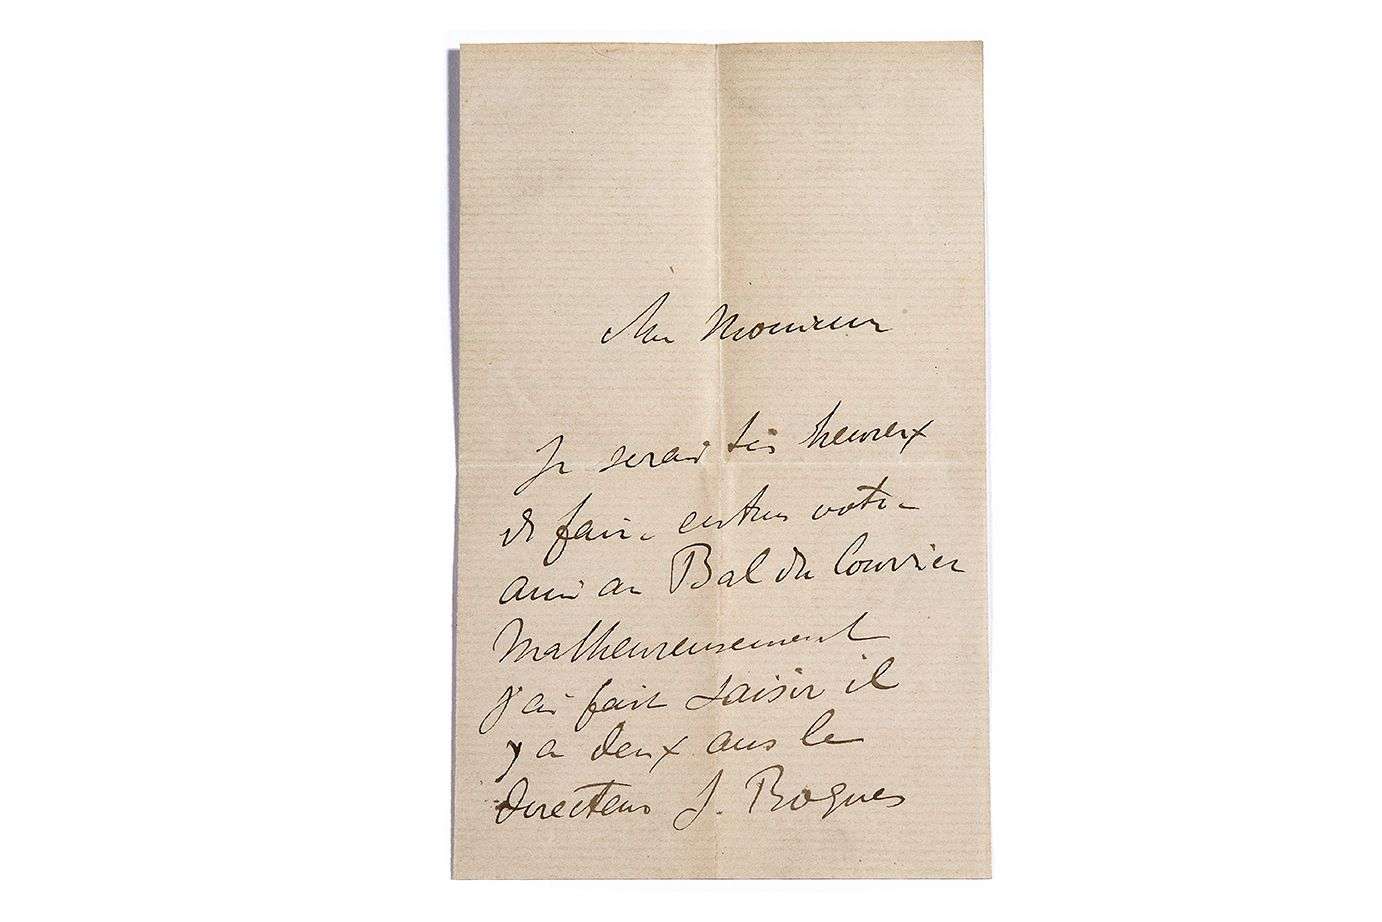 Mon Monsieur
Je serais très heureux
de faire entrer votre
ami au Bal du Courrier
Malheureusement
j'ai fait saisir il
y a deux ans le
directeur J. Roques